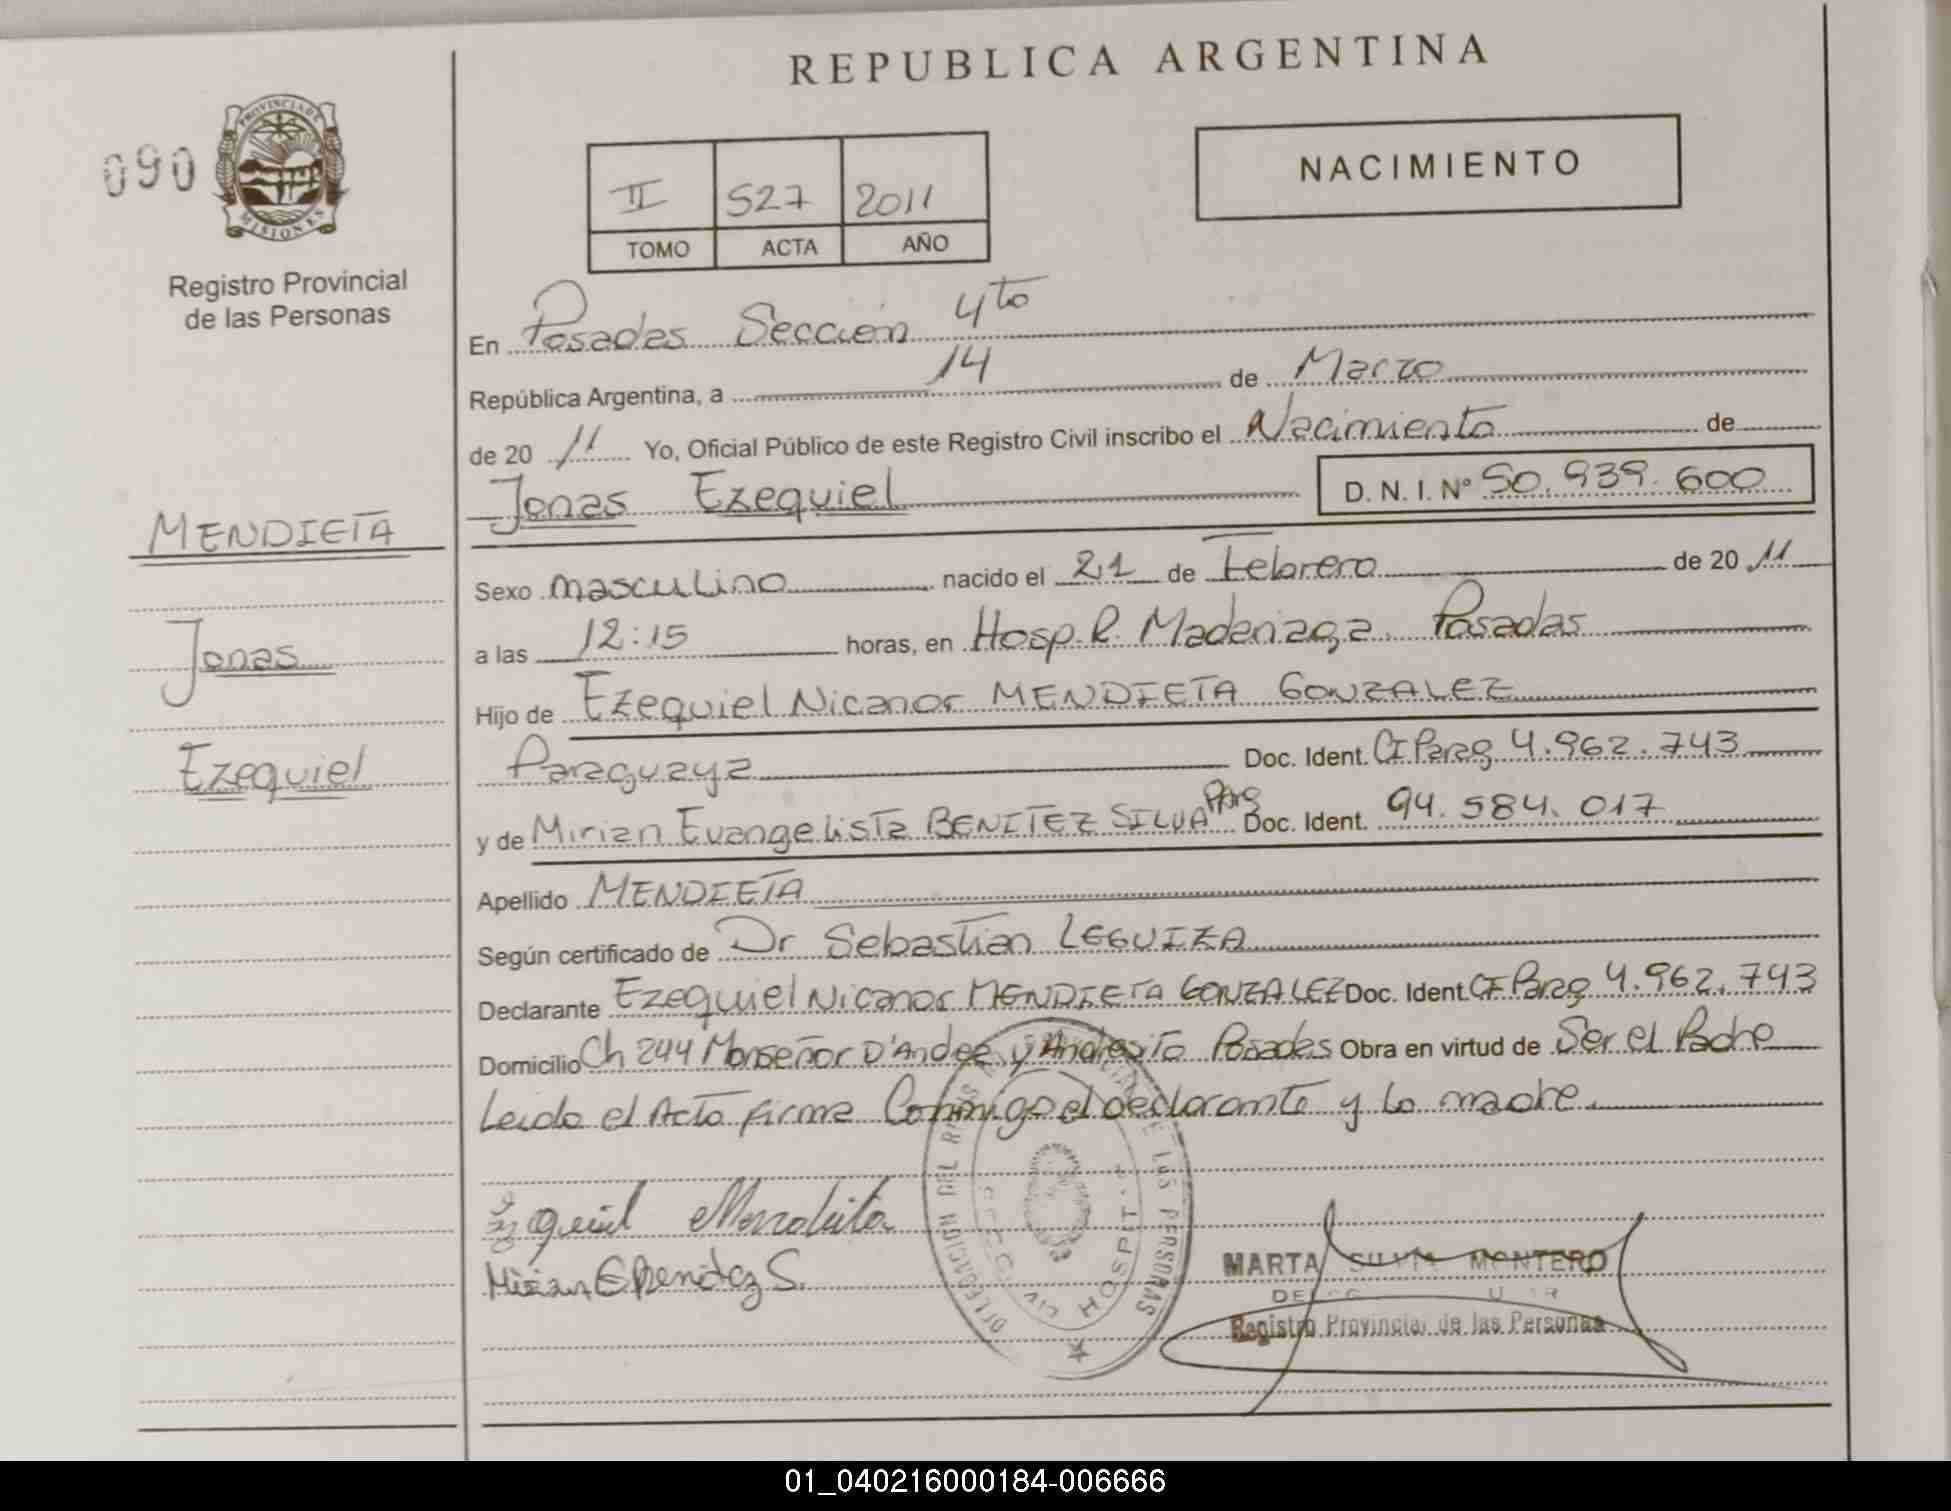 REPUBLICA ARGENTINA
090
PROVINCIA DE
MISIONES
Registro Provincial
de las Personas
NACIMIENTO
II 527 2011
TOMO ACTA AÑO
En Posadas Sección 4to
República Argentina, a 14 de Marzo
de 20 11 Yo, Oficial Público de este Registro Civil inscribo el Nacimiento de
Jonas Ezequiel D. N. I. Nº 50.939.600
MENDIETA
Jonas
Ezequiel
Sexo masculino nacido el 21 de Febrero de 20 11
a las 12:15 horas, en Hosp. R. Madariaga Posadas
Hijo de Ezequiel Nicanor MENDIETA GONZALEZ
Paraguaya Doc. Ident. CI Parag 4.962.743
y de Mirian Evangelista BENITEZ SILVA Parg Doc. Ident. 94.584.017
Apellido MENDIETA
Según certificado de Dr Sebastian LEGUIZA
Declarante Ezequiel Nicanor MENDIETA GONZALEZ Doc. Ident. CI Parag 4.962.743
Domicilio Ch 244 Monseñor D'Andea y Andresito Posadas Obra en virtud de Ser el Padre
Leido el Acta firma Conmigo el declarante y la madre
Ezequiel Mendieta
DELEGACION DEL LAS PERSONAS
HOSPIT
MARTA SILVIA MONTERO
Registro Provincial de las Personas
01_040216000184-006666